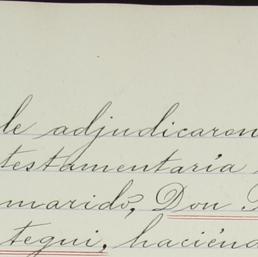 le adjudicaron
testamentaria
marido, Don
tegui, haciénd